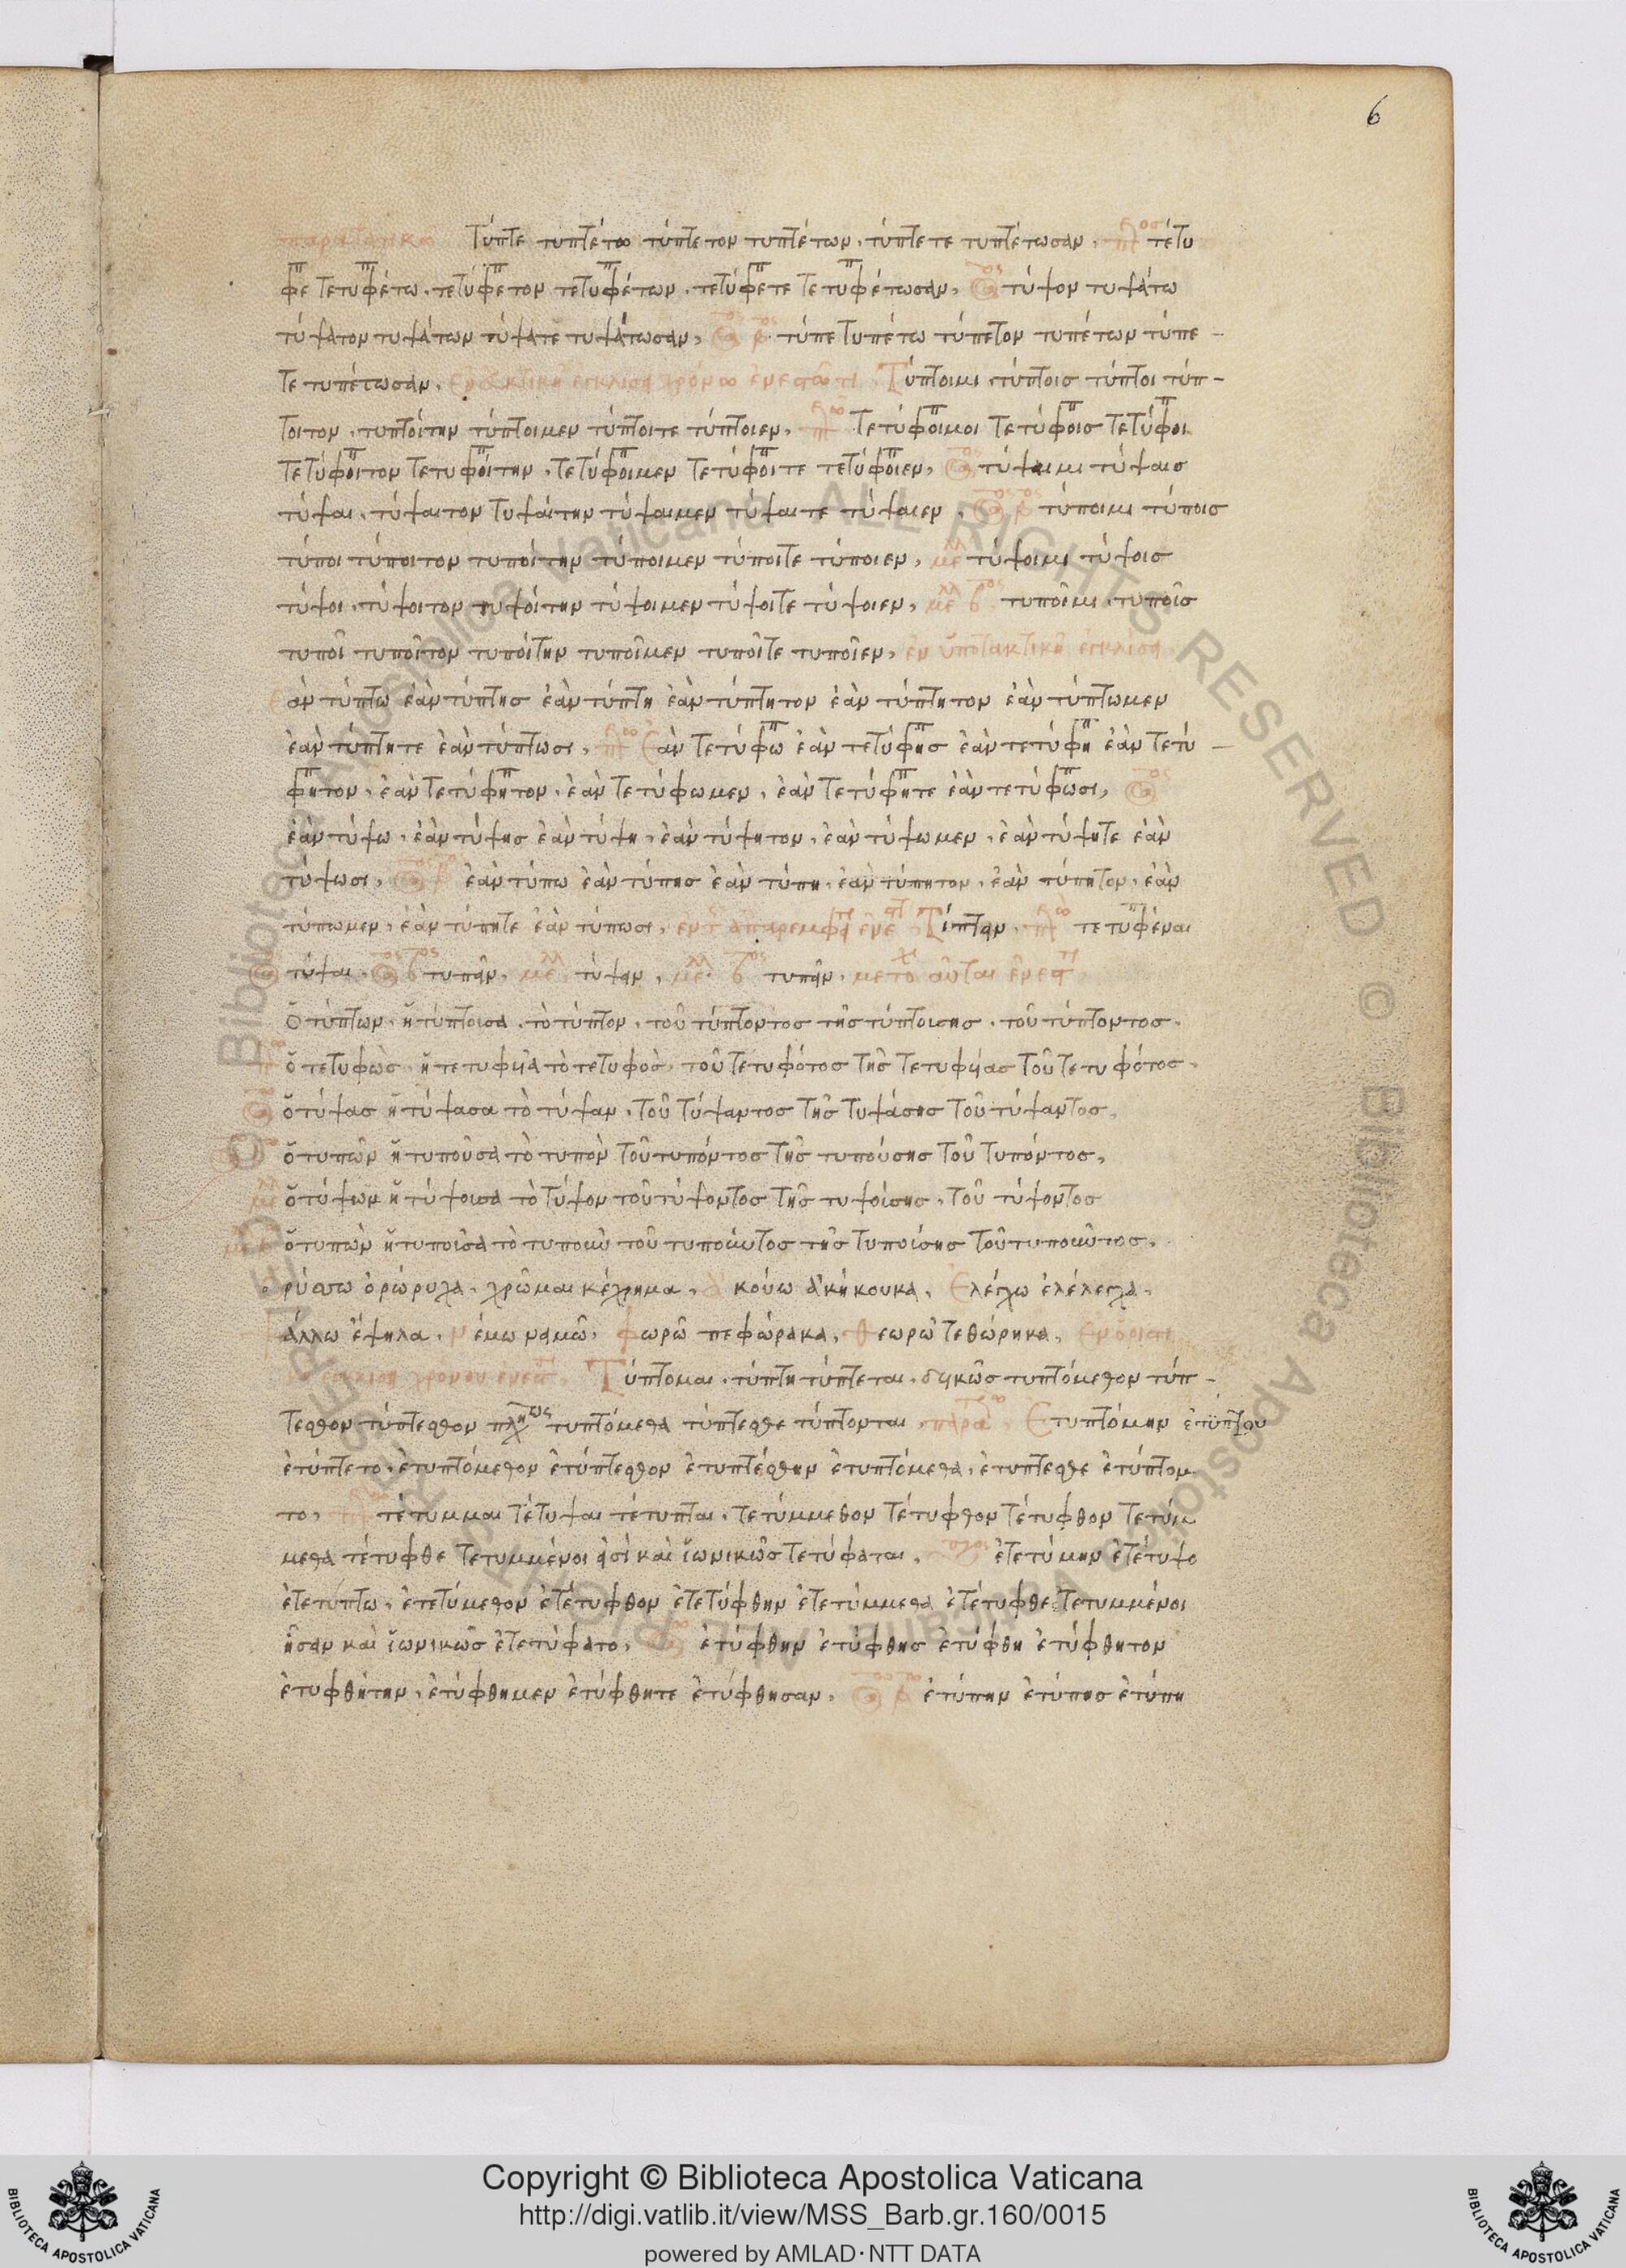 6
παρατατικω Τύπτε τυπτέτω τύπτετον τυπτέτων. τύπτετε τυπτέτωσαν, τέτυ
φε τετυφέτω. τετύφετον τετυφέτων. τετύφετε τετυφέτωσαν, τύψον τυψάτω
τύψατον τυψάτων τύψατε τυψάτωσαν, τύπε τυπέτω τύπετον τυπέτων τύπε –
τε τυπέτωσαν, Τύπτοιμι τύπτοισ τύπτοι τύπ –
τοιτον. τυπτοίτην τύπτοιμεν τύπτοιτε τύπτοιεν, τετύφοιμοι τετύφοισ τετύφοι
τετύφοιτον τετυφοίτην. τετύφοιμεν τετύφοιτε τετύφοιεν, τύψαιμι τύψαισ
τύψαι. τύψαιτον τυψάιτην τύψαιμεν τύψαιτε τύψαιεν, τύποιμι τύποισ
τύποι τύποιτον τυποίτην τύποιμεν τύποιτε τύποιεν, τύψοιμι τύψοισ
τύψοι. τύψοιτον τυψόιτην τύψοιμεν τύψοιτε τύψοιεν, τυποῖμι. τυποῖσ
τυποῖ τυποῖτον τυποίτην τυποῖμεν τυποῖτε τυποῖεν, ἐν ὑποτακτικῆ ἐγκλίσει
ἐὰν τύπτω ἐὰν τύπτησ ἐὰν τύπτη ἐὰν τύπτητον ἐὰν τύπτητον ἐὰν τύπτωμεν
ἐὰν τύπτητε ἐὰν τύπτωσι, ἐὰν τετύφω ἐὰν τετύφησ ἐὰν τετύφη ἐὰν τετύ –
φητον. ἐὰν τετύφητον. ἐὰν τετύφωμεν. ἐὰν τετύφητε ἐὰν τετύφωσι,
ἐὰν τύψω. ἐὰν τύψησ ἐὰν τύψη. ἐὰν τύψητον. ἐὰν τύψωμεν. ἐὰν τύψητε ἐὰν
τύψωσι, ἐὰν τύπω ἐὰν τύπησ ἐὰν τύπη. ἐὰν τύπητον. ἐὰν τύπητον. ἐὰν
τύπωμεν. ἐὰν τύπητε ἐὰν τύπωσι, Τύπτειν. τετυφέναι
τύψαι. τυπεῖν. τύψειν, τυπεῖν.
ὁ τύπτων. ἡ τύπτοισα. τὸ τύπτον. τοῦ τύπτοντοσ τῆσ τύπτοισησ. τοῦ τύπτοντοσ.
ὁ τετυφὼσ. ἡ τετυφυῖα τὸ τετυφοσ. τοῦ τετυφότοσ τῆσ τετυφυίασ τοῦ τετυφότοσ.
ὁ τύψασ ἡ τύψασα τὸ τύψαν. τοῦ τύψαντοσ τῆσ τυψάσησ τοῦ τύψαντοσ,
ὁ τυπῶν ἡ τυποῦσα τὸ τυπὸν τοῦ τυπόντοσ τῆσ τυπούσησ τοῦ τυπόντοσ,
ὁ τύψων ἡ τύψοισα τὸ τύψον τοῦ τύψοντοσ τῆσ τυψοίσησ. τοῦ τύψοντοσ
ὁ τυπὼν ἡ τυποῖσα τὸ τυποῦν τοῦ τυποῦντοσ τῆσ τυποίσησ τοῦ τυποῦντοσ,
ορύσσω ὀρώρυχα. χρῶμαι κέχρημα, ἀκούω ἀκήκουκα, Ελέγχω ἐλέλεγχα,
άλλω ἔψηλα. νέμω νεμῶ, φωρῶ πεφώρακα, θεωρῶ τεθώρηκα,
Τύπτομαι. τύπτη τύπτεται. δυϊκῶσ τυπτόμεθον τύπ –
τεσθον τύπτεσθον τυπτόμεθα τύπτεσθε τύπτονται, Ετυπτόμην ἐτύπτου
ἐτύπτετο. ἐτυπτόμεθον ἐτύπτεσθον ἐτυπτέσθην ἐτυπτόμεθα. ἐτυπτεσθε ἐτύπτον
το, τέτυμμαι τέτυψαι τέτυπται. τετύμμεθον τέτυφθον τέτυφθον τετύμ
μεθα τέτυφθε τετυμμένοι εἰσὶ καὶ ἰωνικῶσ τετύφαται, ἐτετύμην ἐτέτυψο
ἐτετυπτω. ἐτετύμεθον ἐτέτυφθον ἐτετύφθην ἐτετύμμεθα ἐτέτυφθε τετυμμένοι
ἦσαν καὶ ἰωνικῶσ ἐτετύφατο, ἐτύφθην ἐτύφθησ ἐτύφθη ἐτύφθητον
ἐτυφθήτην. ἐτύφθημεν ἐτύφθητε ἐτύφθησαν, ἐτύπην ἐτύπησ ἐτύπη
Copyright © Biblioteca Apostolica Vaticana
http://digi.vatlib.it/view/MSS_Barb.gr.160/0015
powered by AMLAD·NTT DATA